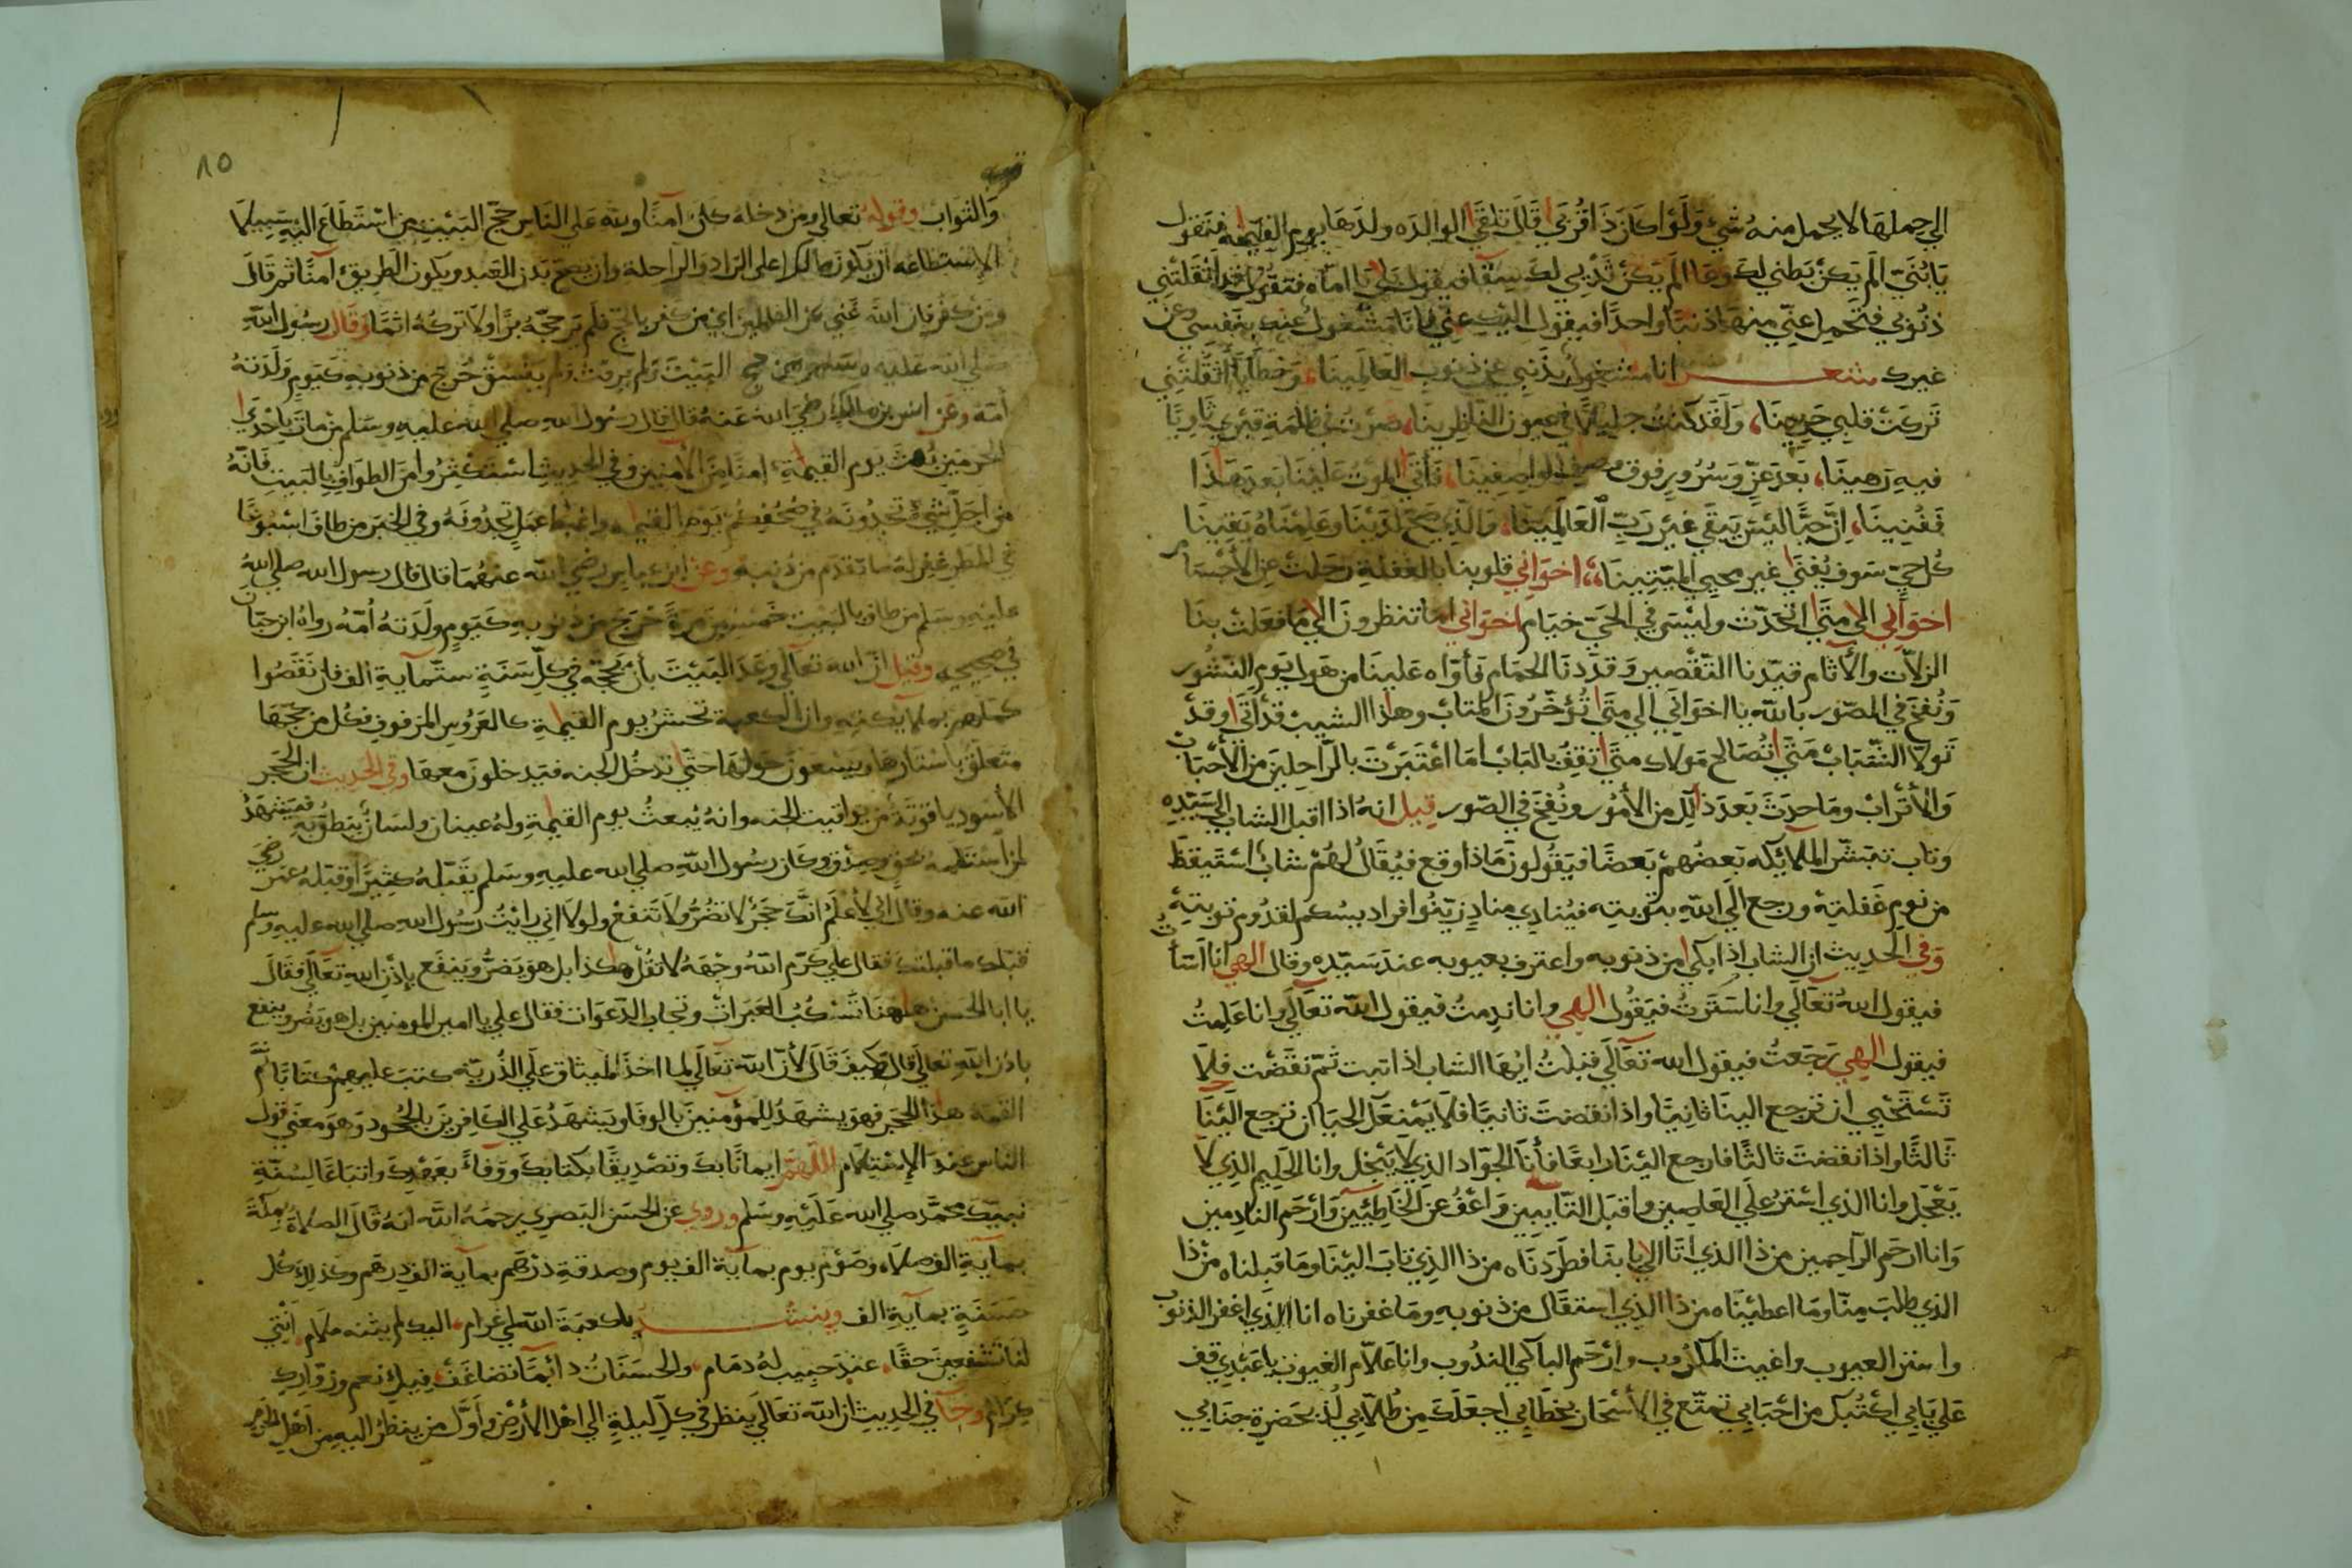 الي حملها لا يحمل منه شيء ولوا كان ذا قربي قال تلقا الوالده ولدها يوم القيمة فتقول
يا بني الم يكن بطني لك وعا الم يكن ثديي لك سقا فيقول بلي يا اماه فتقول قد اثقلتني
ذنوبي فتحمل عني منها ذنبا واحدا فيقول اليك عني فانا مشغول عنك بنفسي وعن
غيرك شعر انا مشغول بذنبي عن ذنوب العالمينا، وخطايا أثقلتني
تركت قلبي حزينا، ولقد كنت جليلا في عيون الناظرينا، صرت في ظلمة قبري ثاويا
فيه رهينا، بعد عز وسرور فوق وصف الواصفينا، فأتا الموت علينا بعد هذا
ففنينا، ان حيا ليس يبقي غير رب العالمينا، والذي صح لدينا وعلمناه يقينا
كل حي سوف يفنا غير محيي الميتينا، اخواني قلوبنا بالغفلة رحلت عن الأجسام
اخواني الي متي التحدث وليس في الحي خيام اخواني اما تنظرون الي ما فعلت بنا
الزلات والأثام قيدنا التقصير وقددنا الحمام فأواه علينا من هول يوم النشور
ونفخ في الصور بالله يا اخواني الي متا تؤخرون المتاب وهاذا الشيب قد أتا وقد
تولا الشباب متي تصالح مولاك متي تقف بالباب اما اعتبرت بالراحلين من الأحباب
والأتراب وما حدث بعد ذلك من الأمور ونفخ في الصور قيل انه اذا اقبل الشاب الي سيده
وتاب تبتشر الملايكه بعضهم بعضا فيقولون ماذا وقع فيقال لهم شاب استيقظ
من نوم غفلته ورجع الي الله بتوبته فينادي مناد زينوا فراديسكم لقدوم توبته
وفي الحديث ان الشاب اذا بكي من ذنوبه واعترف بعيوبه عند سيده وقال الهي انا اسأت
فيقول الله تعالي وانا سترت فيقول الهي وانا ندمت فيقول الله تعالي وانا علمت
فيقول الهي رجعت فيقول الله تعالي قبلت ايها الشاب اذا تبت ثم نقضت فلا
تستحيي ان ترجع الينا ثانيا واذا نقضت ثانيا فلا يمنعك الحيا ان ترجع الينا
ثالثا واذا نقضت ثالثا فارجع الينا رابعا فأنا الجواد الذي لا يبخل وانا الحليم الذي لا
يعجل وانا الذي استر علي العاصين واقبل التايبين واعف عن الخاطيين وارحم النادمين
وانا ارحم الراحمين من ذا الذي اتا الي بابنا فطردناه من ذا الذي تاب الينا وما قبلناه من ذا
الذي طلب منا وما اعطيناه من ذا الذي استقال من ذنوبه وما غفرناه انا الذي اغفر الذنوب
واستر العيوب واغيث المكروب وارحم الباكي الندوب وانا علام الغيوب يا عبدي قف
علي بابي اكتبك من احبابي تمتع في الأسحار بخطابي اجعلك من طلابي لذ بحضرة جنابي
١٥
والثواب وقوله تعالي ومن دخله كان آمنا ولله علي الناس حج البيت من استطاع اليه سبيلا
الإستطاعه ان يكون مالكا علي الزاد والراحلة وان يصح بدن العبد ويكون الطريق آمنا ثم قال
ومن كفر فان الله غني عن العلمين اي من كفر بالحج فلم ير حجه برا ولا تركه اثما وقال رسول الله
صلي الله عليه وسلم من حج البيت ولم يرفث ولم يفسق خرج من ذنوبه كيوم ولدته
أمه وعن انس بن مالك رضي الله عنه قال قال رسول الله صلي الله عليه وسلم من مات باحدي
الحرمين بعث يوم القيمة امنا من الأمنين وفي الحديث استكثروا من الطواف بالبيت فانه
من اجل شيء تجدونه في صحفكم يوم القيمة واغبط عمل تجدونه وفي الخبر من طاف اسبوعا
في المطر غفر له ما تقدم من ذنبه وعن ابن عباس رضي الله عنهما قال قال رسول الله صلي الله
عليه وسلم من طاف بالبيت خمسين مرة خرج من ذنوبه كيوم ولدته أمه رواه ابن حبان
في صحيحه وقيل ان الله تعالي وعد البيت بأن يحجه في كل سنة ستماية الف فان نقصوا
كملهم بملايكته وان الكعبة تحشر يوم القيمة كالعروس المزفوف فكل من حجها
متعلق بأستارها ويسعون حولها حتي تدخل الجنه فيدخلون معها وفي الحديث ان الحجر
الأسود ياقوتة من يواقيت الجنه وانه يبعث يوم القيمة وله عينان ولسان ينطق به فيشهد
لمن استلمه بحق وصدق وكان رسول الله صلي الله عليه وسلم يقبله كثيرا وقبله عمر رضي
الله عنه وقال اني لأعلم انك حجر لا تضر ولا تنفع ولولا اني رايت رسول الله صلي الله عليه وسلم
قبلك ما قبلتك فقال علي كرم الله وجهه لا تقل هكذا بل هو يضر وينفع بإذن الله تعالي فقال
يا ابا الحسن هاهنا تسكب العبرات وتجاب الدعوات فقال علي يا امير المومنين بل هو يضر وينفع
باذن الله تعالي قال وكيف قال لأن الله تعالي لما اخذ الميثاق علي الذرية كتب عليهم كتابا ثم
القمه هذا الحجر فهو يشهد للمؤمنين بالوفا ويشهد علي الكافرين بالجحود وهو معني قول
الناس عند الإستلام اللهم ايمانا بك وتصديقا بكتابك ووفاء بعهدك واتباعا لسنة
نبيك محمد صلي الله عليه وسلم وروي عن الحسن البصري رحمه الله انه قال الصلاة بمكة
بماية الف صلاه وصوم يوم بماية الف يوم وصدقة درهم بماية الف درهم وكذلك كل
حسنة بماية الف وينشد يا كعبة الله لي غرام، اليك لم يثنه ملام، انتي
لنا تشفعين حقا، عند حبيب له ذمام، والحسنات دائما تضاعف، فيك نعم وزوارك
كرام وجآ في الحديث ان الله تعالي ينظر في كل ليلة الي اهل الأرض وأول من ينظر اليه من اهل الأرض